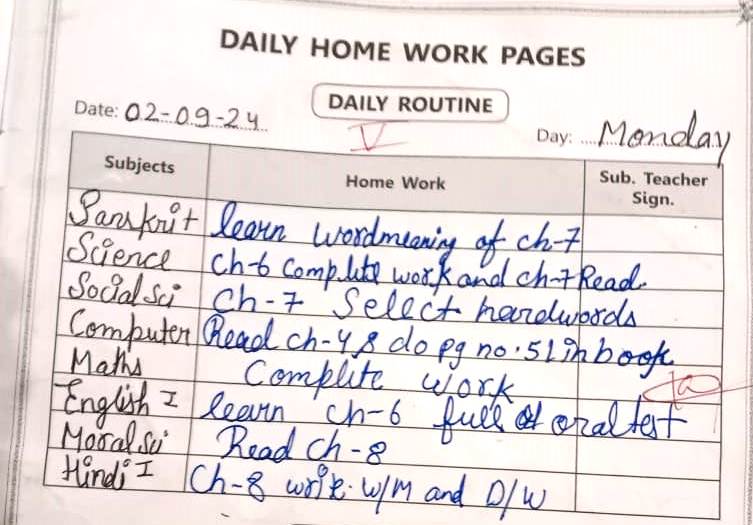 DAILY HOME WORK PAGES
DAILY ROUTINE
Date: 02-09-24
V
Day: Monday
Subjects Home Work Sub. Teacher Sign.
Sanskrit learn wordmeaning of ch-7
Science Ch-6 Complite work and ch-7 Read.
Social sci Ch-7 Select hardwords
Computer Read ch-4 & do pg no. 51 in book
Maths Complite work
English I learn ch-6 full oral test
Moral sci Read ch-8
Hindi I Ch-8 write. W/M and D/W